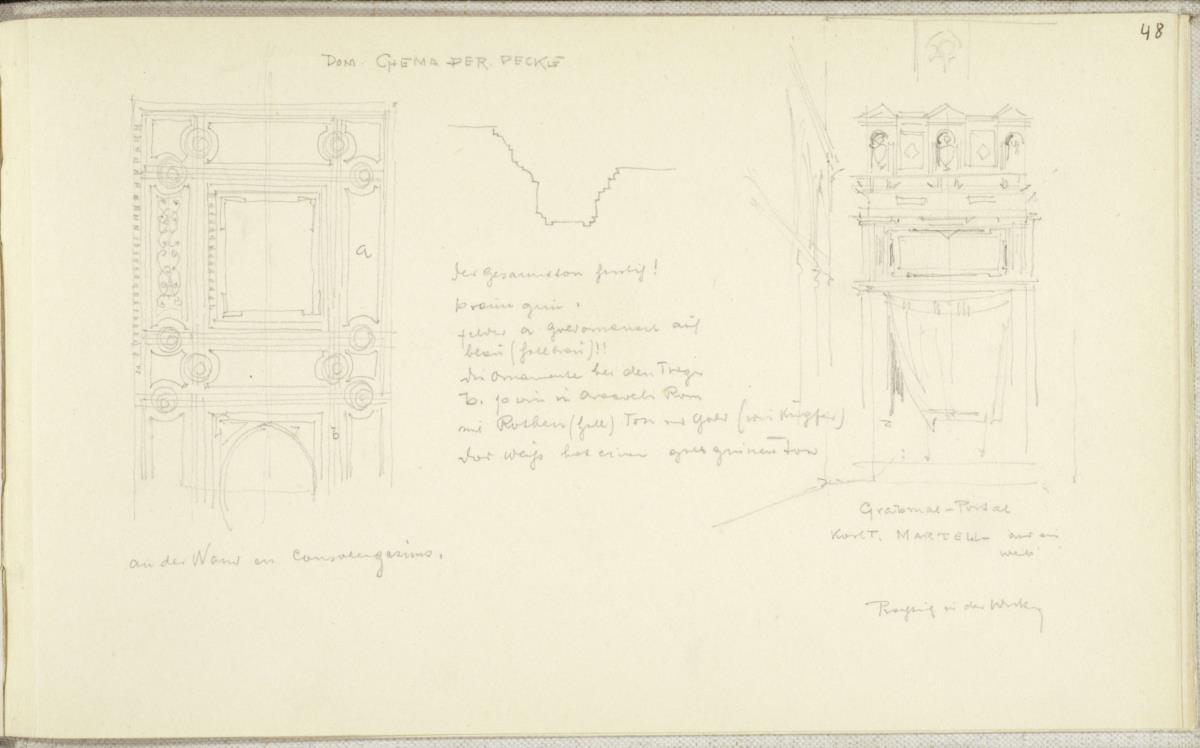 48
DOM. CHEMA DER DECKE
a
der gesammtton
braun grün.
felder a goldornament auf
blau (hellblau)!!
die Ornamente bei den Träger
b. in Aracoeli Rom
mit Rothen (hell) Ton und Gold (wie Kupfer)
das Weiss hat einen grünen Ton
b
an der Wand ein Consolengesims.
Grabmal-Portal
Karl I. MARTELL und ein
Weib
in der Wirkung